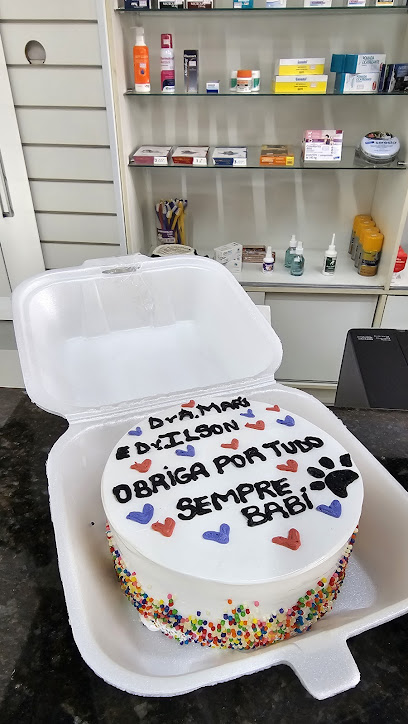 DrA.MARi
E DrILSON
OBRIGA POR TUDO
SEMPRE
BABÍ